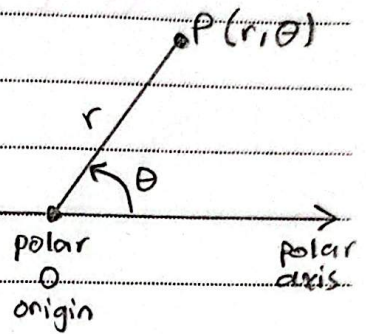 P(r,θ)
r
θ
polar
O
origin
polar
axis